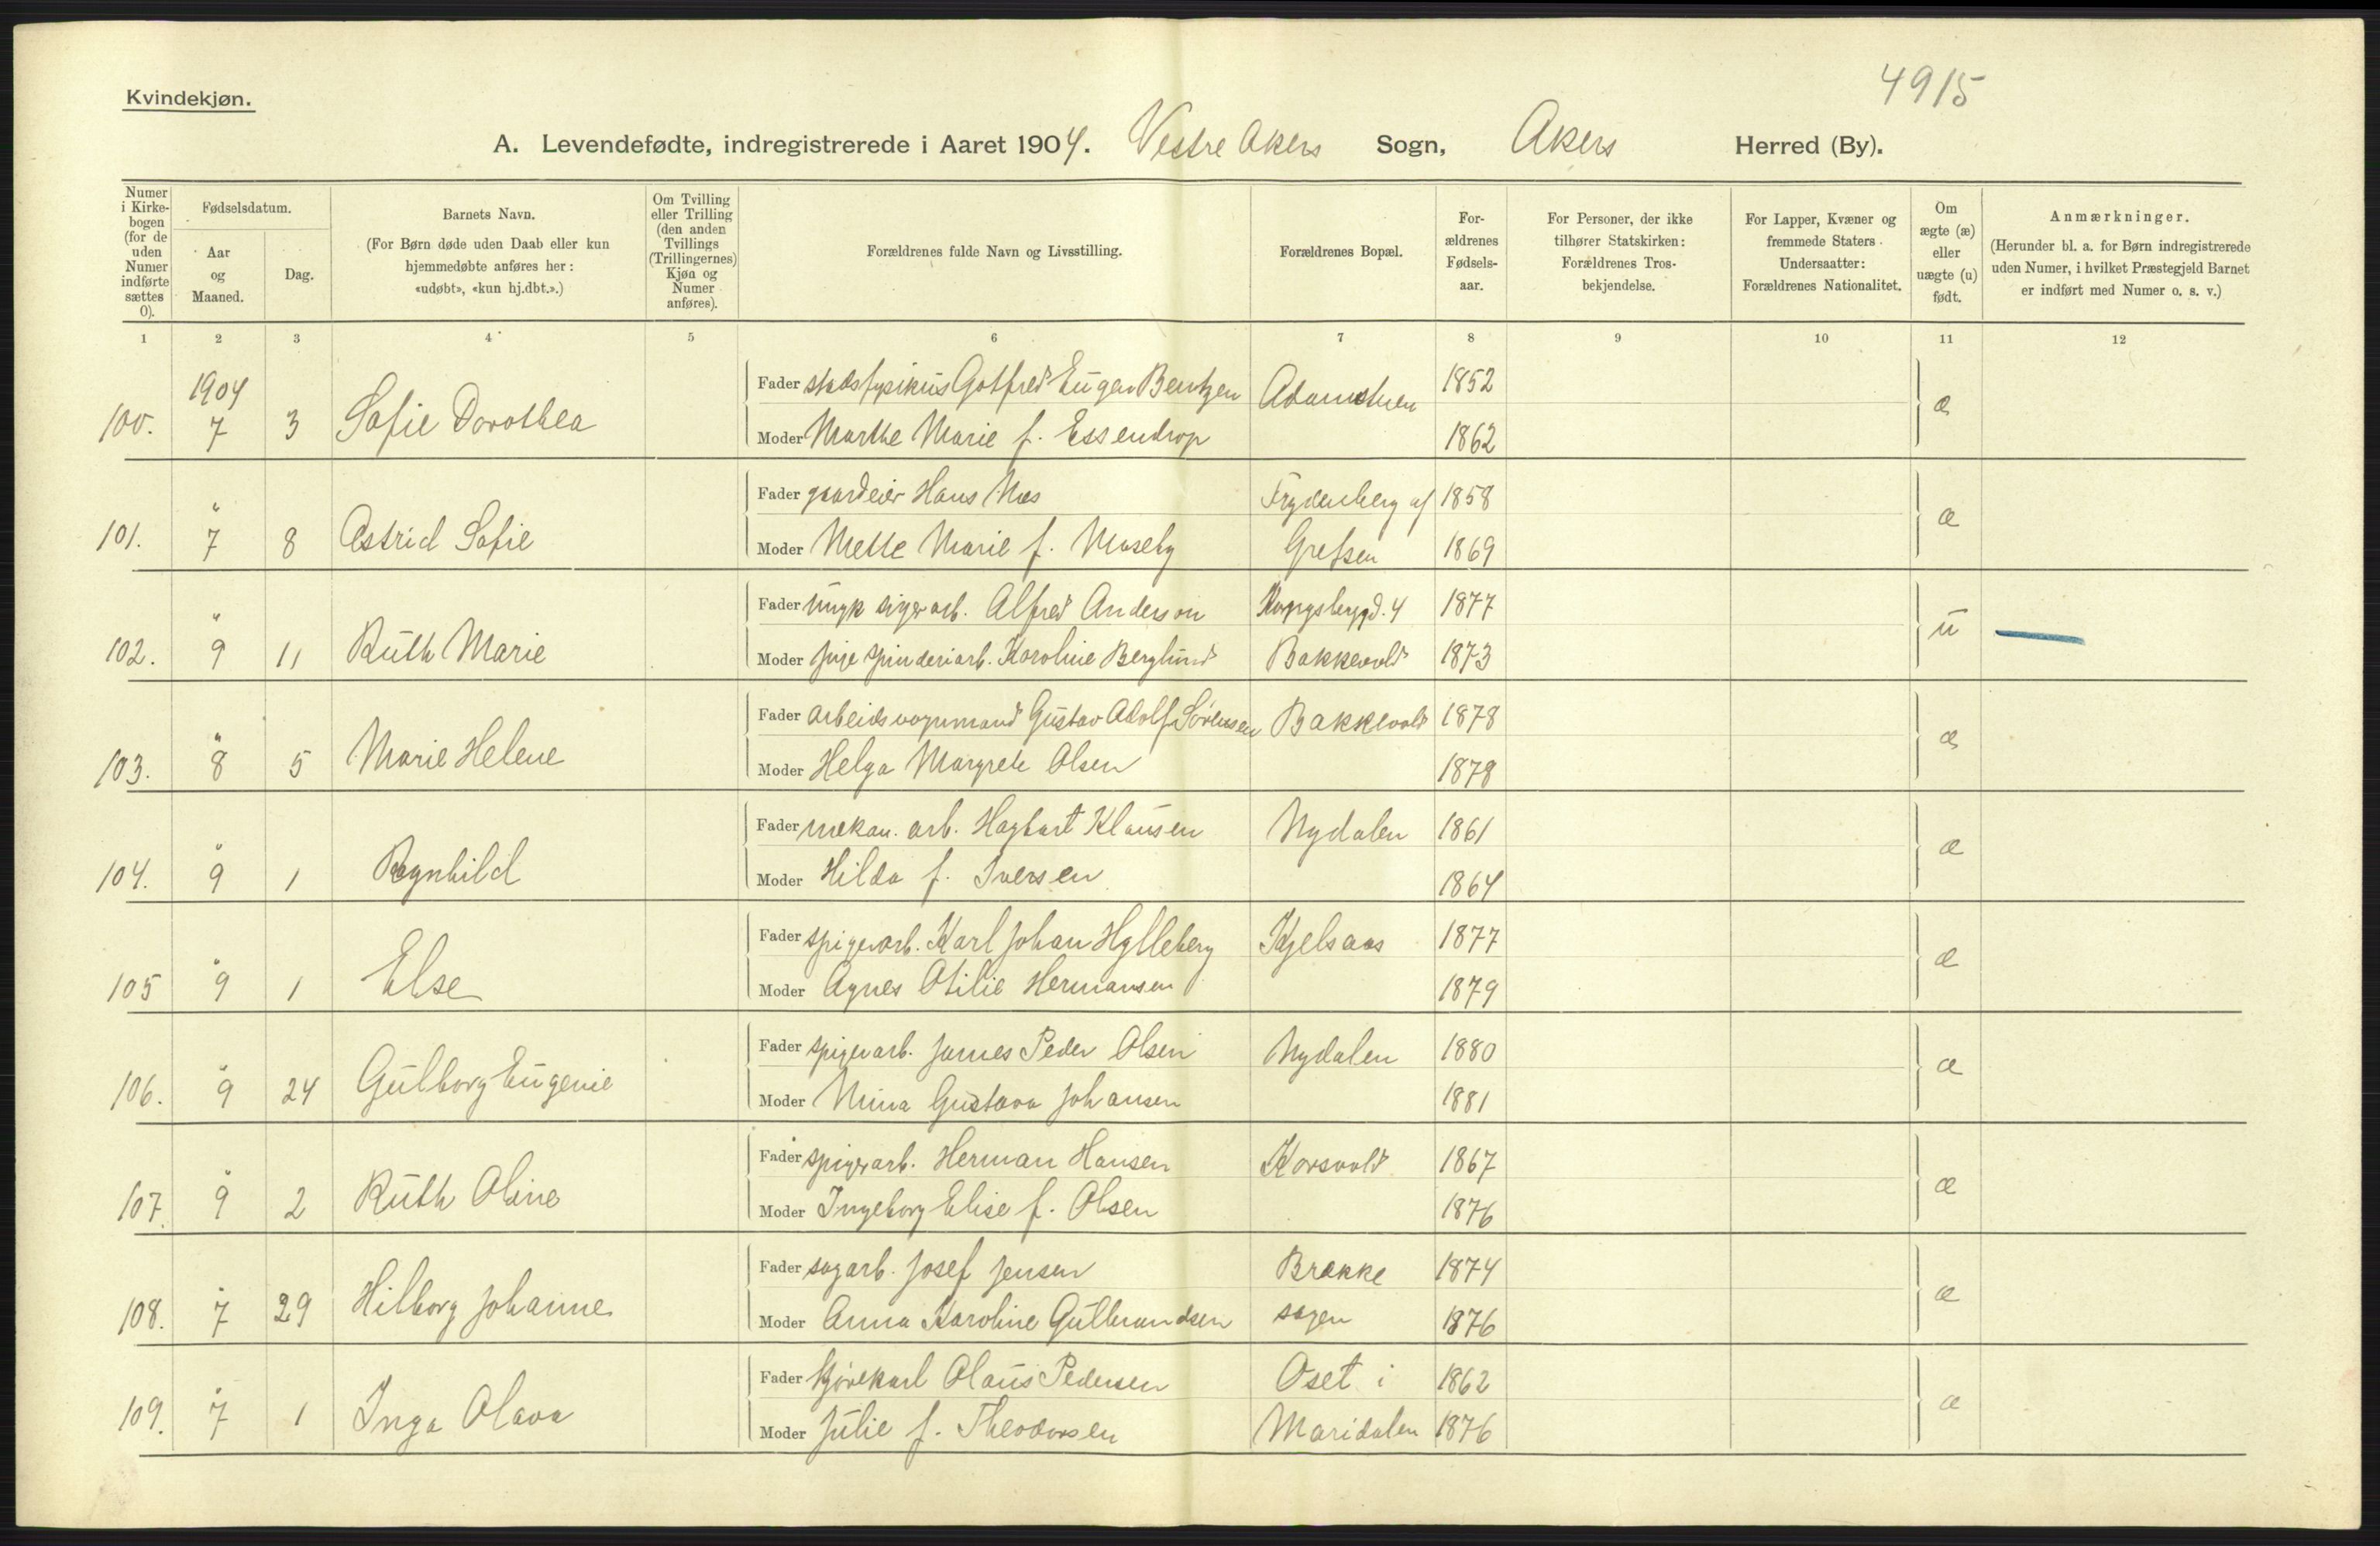 4915
Kvindekjøn.
A. Levendefødte, indregistrerede i Aaret 1904. Vestre Akers Sogn, Akers Herred (By).
Numer i Kirkebogen (for de uden Numer indførte sættes 0).
Fødselsdatum.
Aar og Maaned.
Dag.
Barnets Navn.
(For Børn døde uden Daab eller kun hjemmedøbte anføres her: «udøbt», «kun hj.dbt.».)
Om Tvilling eller Trilling (den anden Tvillings (Trillingernes) Kjøn og Numer anføres).
Forældrenes fulde Navn og Livsstilling.
Forældrenes Bopæl.
Forældrenes Fødselsaar.
For Personer, der ikke tilhører Statskirken: Forældrenes Trosbekjendelse.
For Lapper, Kvæner og fremmede Staters Undersaatter: Forældrenes Nationalitet.
Om ægte (æ) eller uægte (u) født.
Anmærkninger.
(Herunder bl. a. for Børn indregistrerede uden Numer, i hvilket Præstegjeld Barnet er indført med Numer o. s. v.)
1 2 3 4 5 6 7 8 9 10 11 12
1904
Fader stadsfysikus Gotfred Eugen Bentzen Adamstuen 1852
100. 7 3 Sofie Dorothea æ
Moder Marthe Marie f. Essendrop 1862
Fader gaardeier Hans Næs Frydenberg af 1858
101. " 7 8 Astrid Sofie æ
Moder Mette Marie f. Moseby Grefsen 1869
Fader ungk spigerarb. Alfred Anderson Kongsberggd. 4 1877
102. " 9 11 Ruth Marie u
Moder pige spinderiarb. Karoline Berglund Bakkevold 1873
Fader arbeidsvognmand Gustav Adolf Sørensen Bakkevold 1878
103. " 8 5 Marie Helene æ
Moder Helga Margrete Olsen 1878
Fader mekan. arb. Hagbart Klausen Nydalen 1861
104. " 9 1 Ragnhild æ
Moder Hilda f. Iversen 1864
Fader spigerarb. Karl Johan Hylleberg Kjelsaas 1877
105 " 9 1 Else æ
Moder Agnes Otilie Hermansen 1879
Fader spigerarb. James Peder Olsen Nydalen 1880
106. " 9 24 Gulborg Eugenie æ
Moder Mina Gustava Johansen 1881
Fader spigerarb. Herman Hansen Korsvold 1867
107. " 9 2 Ruth Oline æ
Moder Ingeborg Elise f. Olsen 1876
Fader sagarb. Josef Jensen Brække 1874
108. " 7 29 Hilborg Johanne æ
Moder Anna Karoline Gulbrandsen sagen 1876
Fader kjørekarl Olaus Pedersen Oset i 1862
109. " 7 1 Inga Olava æ
Moder Julie f. Theodorsen Maridalen 1876